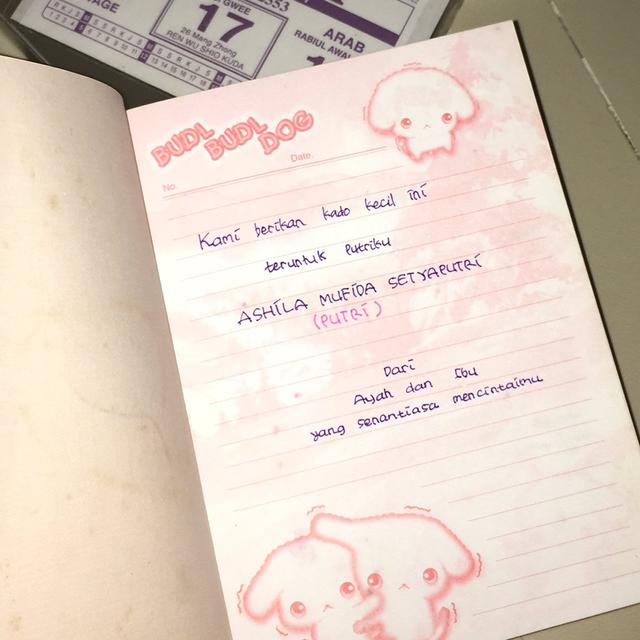 GWEE
17
26 Mang Zhong
REN WU SHIO KUDA
ARAB
RABIUL AWA
BUDL BUDL DOG
No.
Date.
Kami berikan kado kecil ini
teruntuk Putriku
ASHILA MUFIDA SETYAPUTRI
(PUTRI)
Dari
Ayah dan Ibu
yang senantiasa mencintaimu